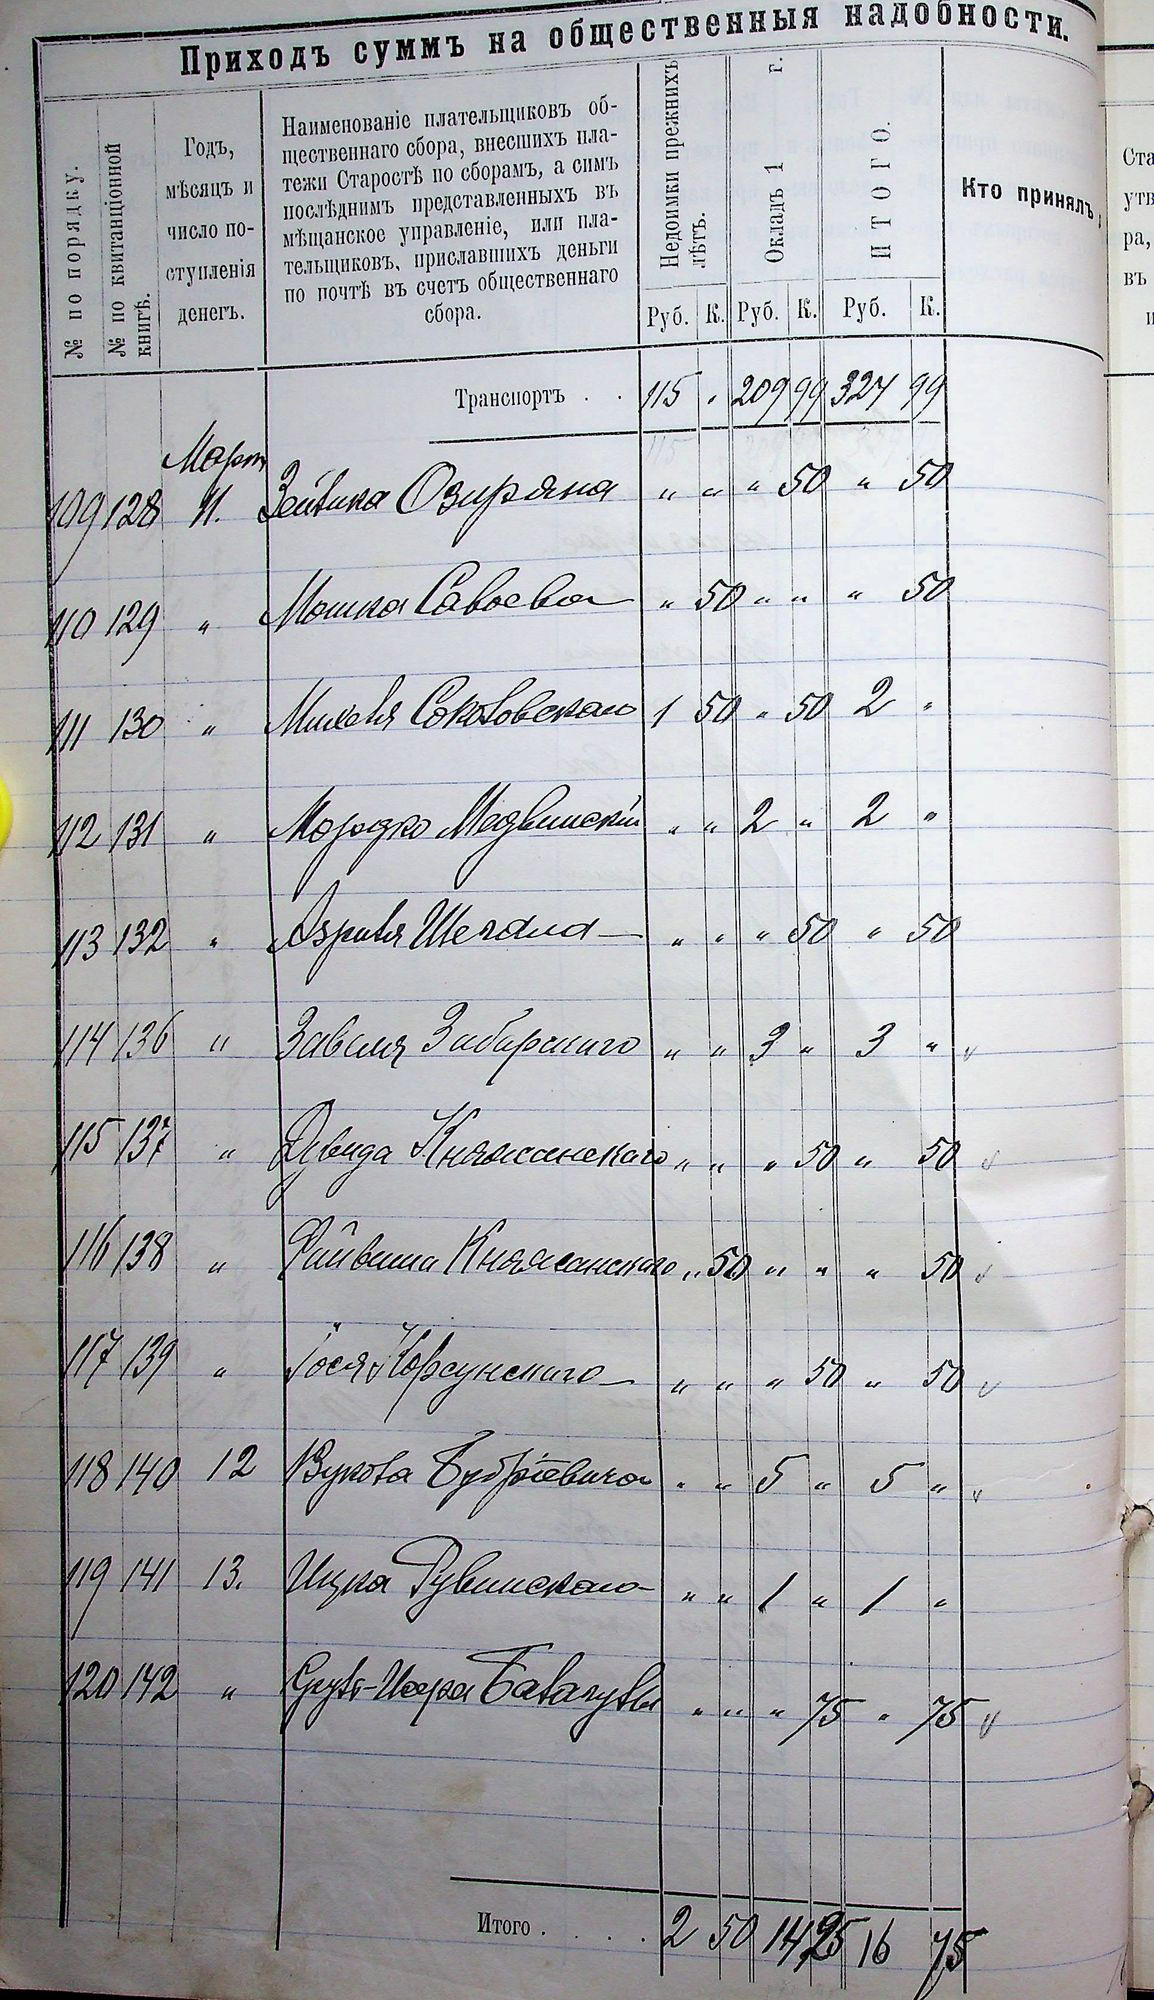 Приходъ суммъ на общественныя надобности.
№ по порядку.
№ по квитанціонной книгѣ.
Годъ,
мѣсяцъ и
число по-
ступленія
денегъ.
Наименованіе плательщиковъ об-
щественнаго сбора, внесшихъ пла-
тежи Старостѣ по сборамъ, а симъ
послѣднимъ представленныхъ въ
мѣщанское управленіе, или пла-
тельщиковъ, приславшихъ деньги
по почтѣ въ счетъ общественнаго
сбора.
Недоимки прежнихъ
лѣтъ.
Окладъ 1 г.
ИТОГО.
Кто принялъ
Руб. К. Руб. К. Руб. К.
Транспортъ . . 115 " 209 99 324 99
Мартъ
109 128 11. Зейвика Озиряна " " " 50 " 50
110 129 " Мошка Савоева " 50 " " " 50
111 130 " Михеля Соколовскаго 1 50 " 50 2 "
112 131 " Мордко Медвинскій " " 2 " 2 "
113 132 " Азриля " " " 50 " 50
114 136 " Завеля Забарскаго " " 3 " 3 " v
115 137 " Давида Княжанскаго " " " 50 " 50 v
116 138 " Файвиша Княжанскаго " 50 " " " 50 v
117 139 " Іося Корсунскаго " " " 50 " 50 v
118 140 12 " " 5 " 5 " v
119 141 13. Ицка Рувинскаго " " 1 " 1 "
120 142 " " " " 75 " 75 v
Итого . . . . 2 50 14 25 16 75
Ста
утв
ра,
въ